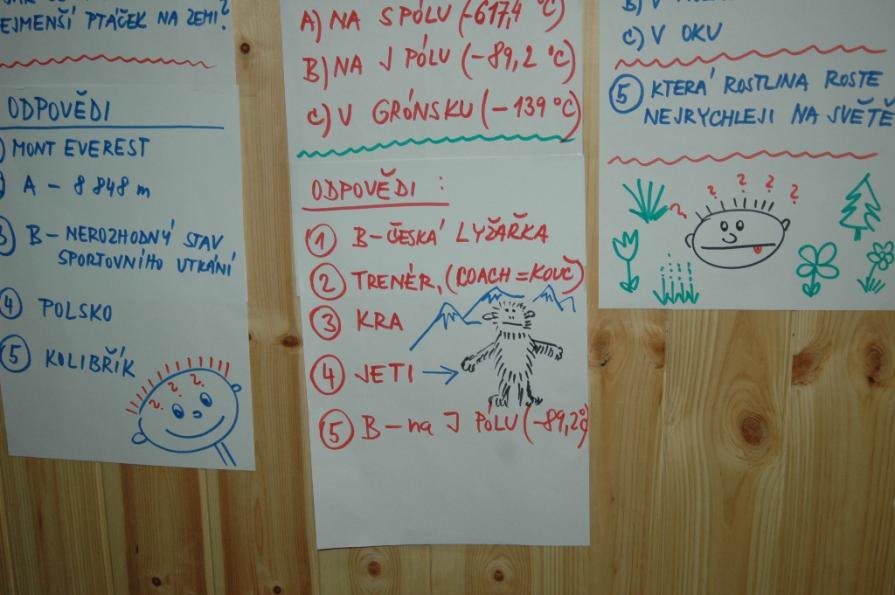 EJMENŠÍ PTÁČEK NA ZEMI?
ODPOVĚDI
MONT EVEREST
A - 8 848 m
B - NEROZHODNÝ STAV
SPORTOVNÍHO UTKÁNÍ
④ POLSKO
⑤ KOLIBŘÍK
? ? ?
A) NA S PÓLU (-617,4 °C)
B) NA J PÓLU (-89,2 °C)
C) V GRÓNSKU (-139 °C)
ODPOVĚDI :
① B - ČESKÁ LYŽAŘKA
② TRENÉR, (COACH = KOUČ)
③ KRA
④ JETI →
⑤ B - na J PÓLU (-89,2°C
C) V OKU
⑤ KTERÁ ROSTLINA ROSTE
NEJRYCHLEJI NA SVĚTĚ
? ? ? ? ?